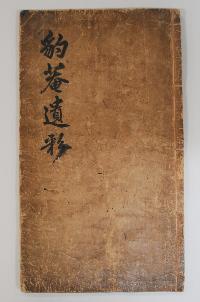 豹菴遺彩